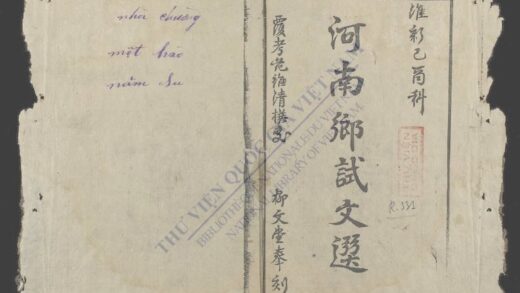 維新己酉科
河南鄉試文選
覆考范維清撰文
柳文堂奉刻
R.331
nhũ chàng
một hào
năm su
THƯ VIỆN QUỐC GIA VIỆT NAM
BIBLIOTHÈQUE NATIONALE DU VIETNAM
NATIONAL LIBRARY OF VIETNAM